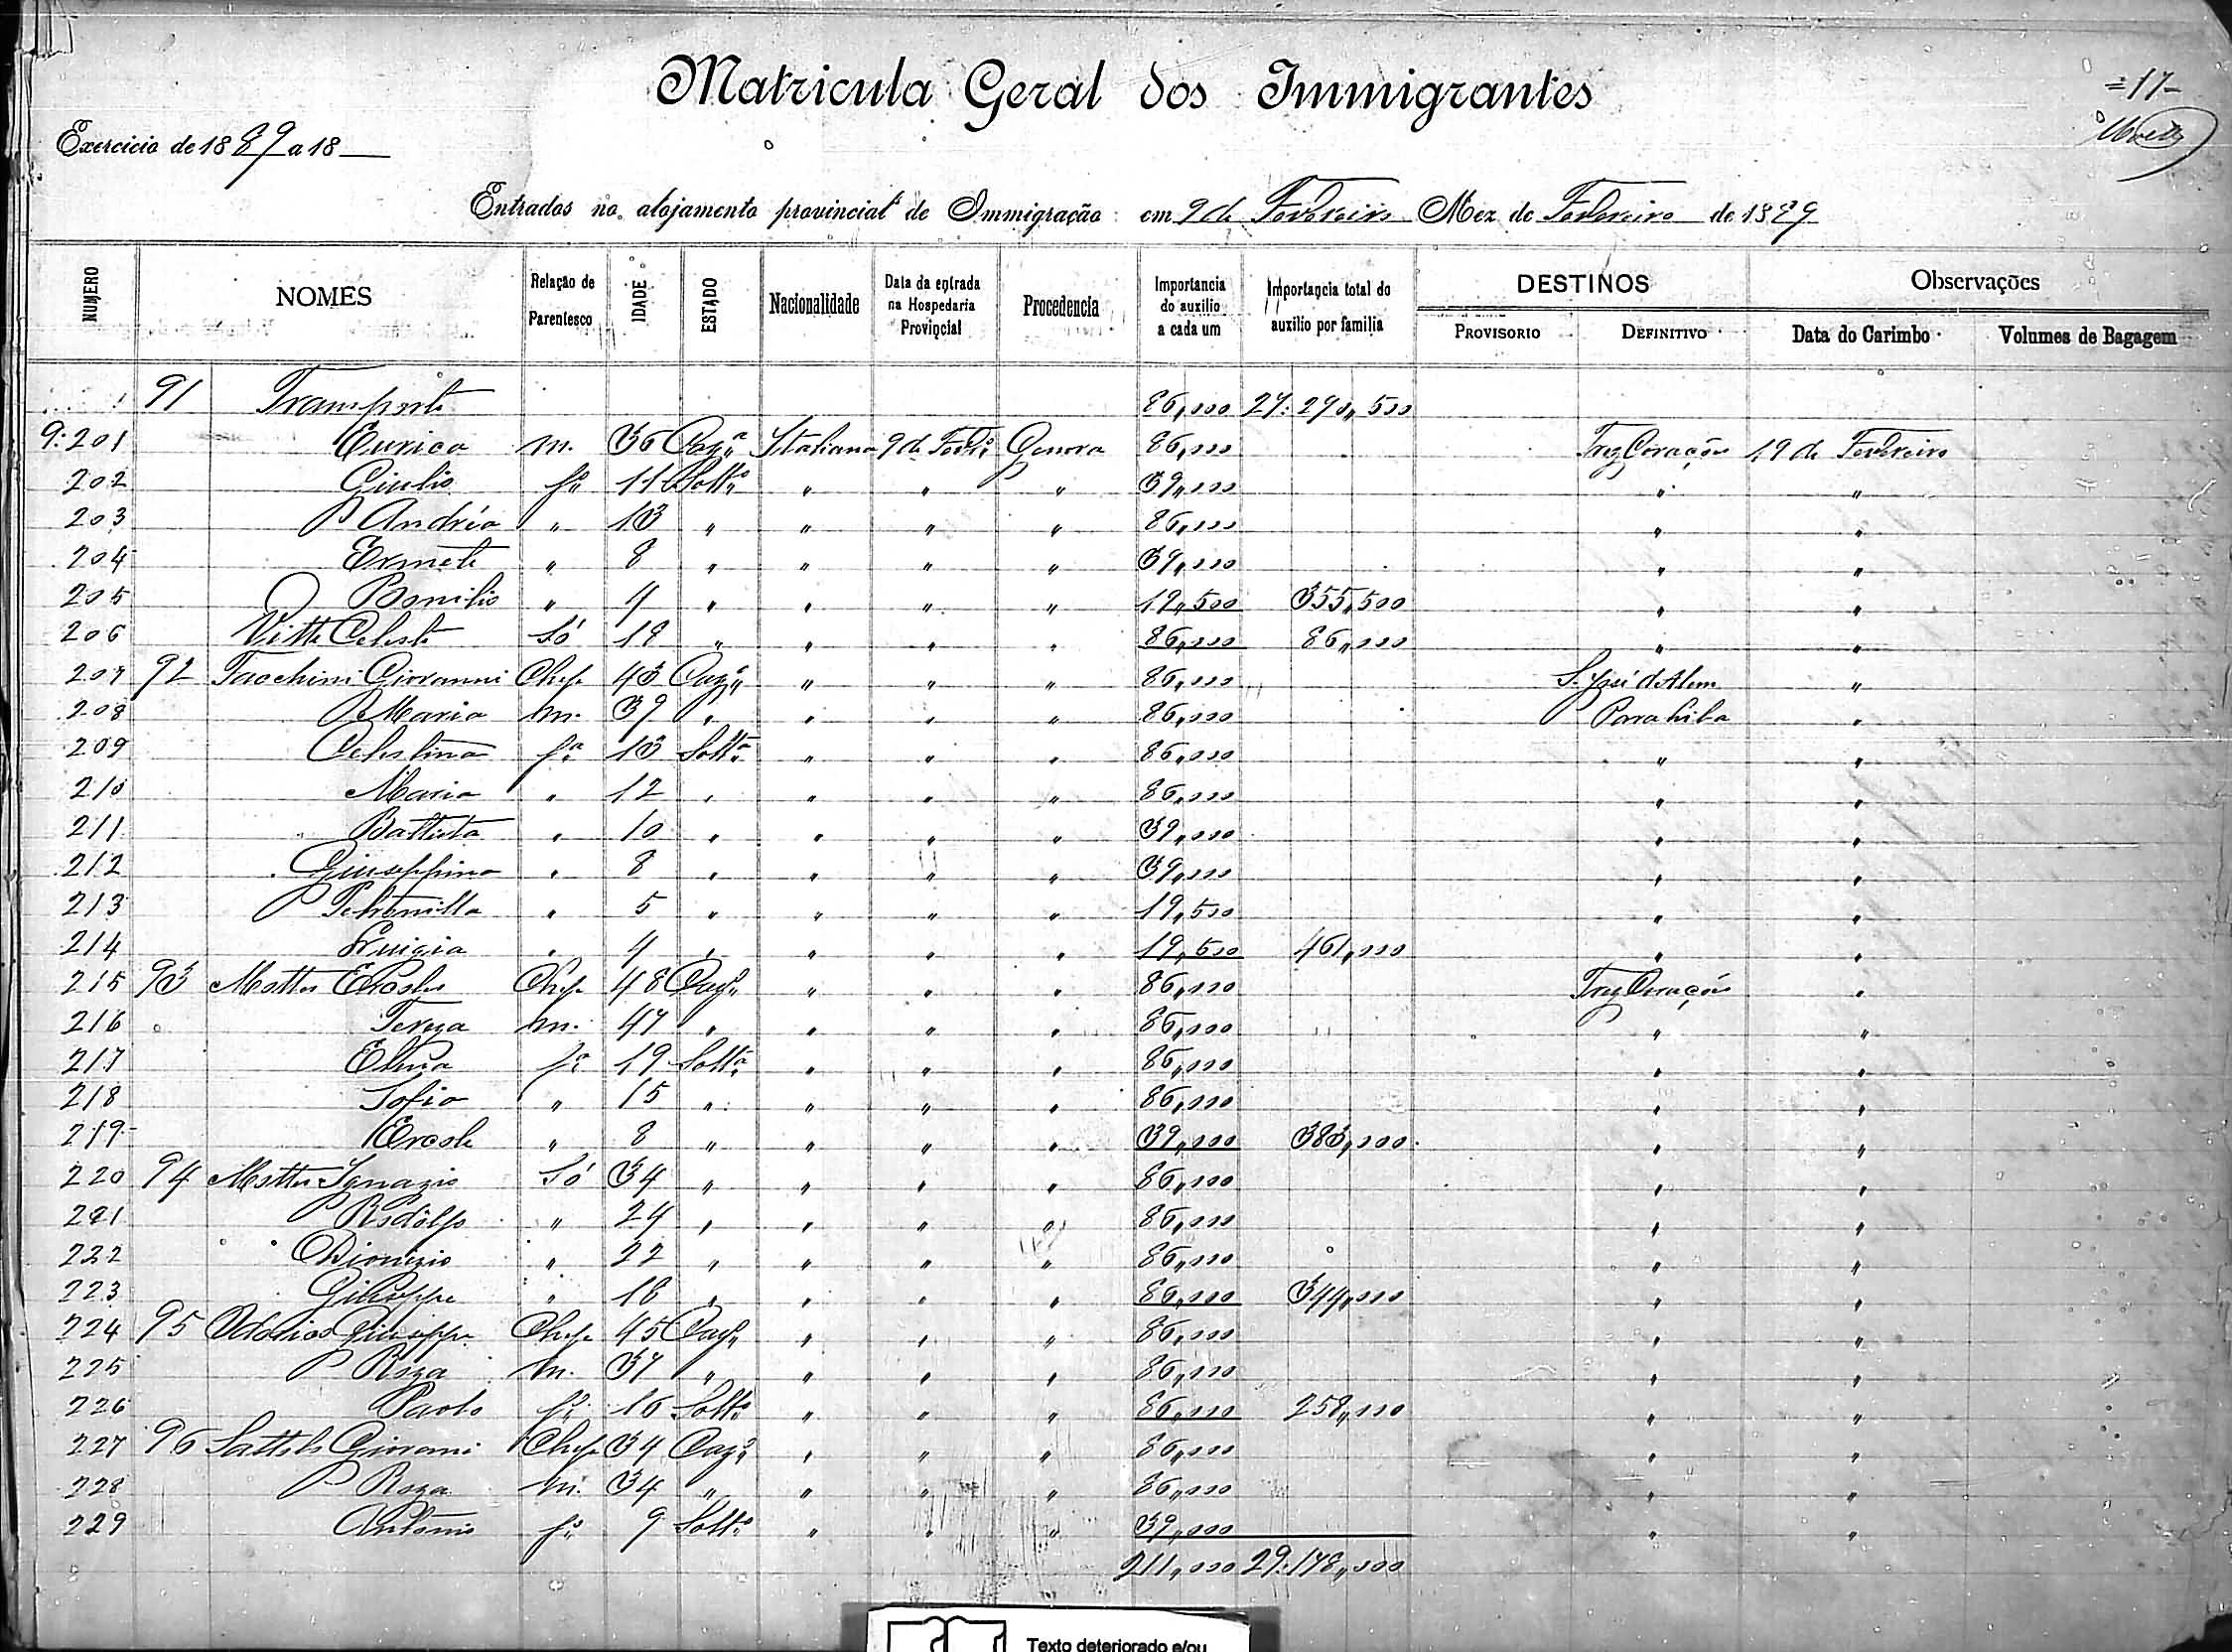 Matricula Geral dos Immigrantes
=17-
Exercicio de 1889 a 18
Entrados no alojamento provincial de Immigração em 9 de Fevereiro Mez de Fevereiro de 1889
NUMERO NOMES Relação de Parentesco IDADE ESTADO Nacionalidade Data da entrada na Hospedaria Provincial Procedencia Importancia do auxilio a cada um Importancia total do auxilio por familia DESTINOS PROVISORIO DEFINITIVO Observações Data do Carimbo Volumes de Bagagem
91 Transporte 86,000 27:290,,500
9:201 Eurica m. 36 Caz.ª Italiana 9 de Fevr.º Genova 86,000 Trez Corações 19 de Fevereiro
202 Giulio f.º 11 Solt.º " " " 39,000 " "
203 Andréa " 13 " " " " 86,000 " "
204 Ermete " 8 " " " " 39,000 " "
205 Bonilio " 4 " " " " 19,500 355,500 " "
206 Vitte Celeste Só 18 " " " " 86,000 86,000 " "
207 92 Tacchini Giovanni Chefe 43 Caz.º " " " 86,000 S. José d'Alem "
208 Maria m. 39 " " " " 86,000 Parahiba "
209 Celestina f.ª 13 Solt.ª " " " 86,000 " "
210 Maria " 12 " " " " 86,000 " "
211 Battista " 10 " " " " 39,000 " "
212 Giuseppina " 8 " " " " 39,000 " "
213 Petronilla " 5 " " " " 19,500 " "
214 Luigia " 4 " " " " 19,500 461,000 " "
215 93 Chefe 48 Caz.º " " " 86,000 Trez Corações "
216 Tereza m. 47 " " " " 86,000 " "
217 Elena f.ª 19 Solt.ª " " " 86,000 " "
218 Sofia " 15 " " " " 86,000 " "
219 Ercole " 8 " " " " 39,000 383,000 " "
220 94 Ignazio Só 34 " " " " 86,000 " "
221 Rodolfo " 24 " " " " 86,000 " "
222 Dionizio " 22 " " " " 86,000 " "
223 Giuseppe " 18 " " " " 86,000 344,000 " "
224 95 Giuseppe Chefe 45 Caz.º " " " 86,000 " "
225 Roza m. 37 " " " " 86,000 " "
226 Paolo f.º 16 Solt.º " " " 86,000 258,000 " "
227 96 Giovanni Chefe 34 Caz.º " " " 86,000 " "
228 Roza m. 34 " " " " 86,000 " "
229 Antonio f.º 9 Solt.º " " " 39,000 " "
211,000 29:178,000
Texto deteriorado e/ou